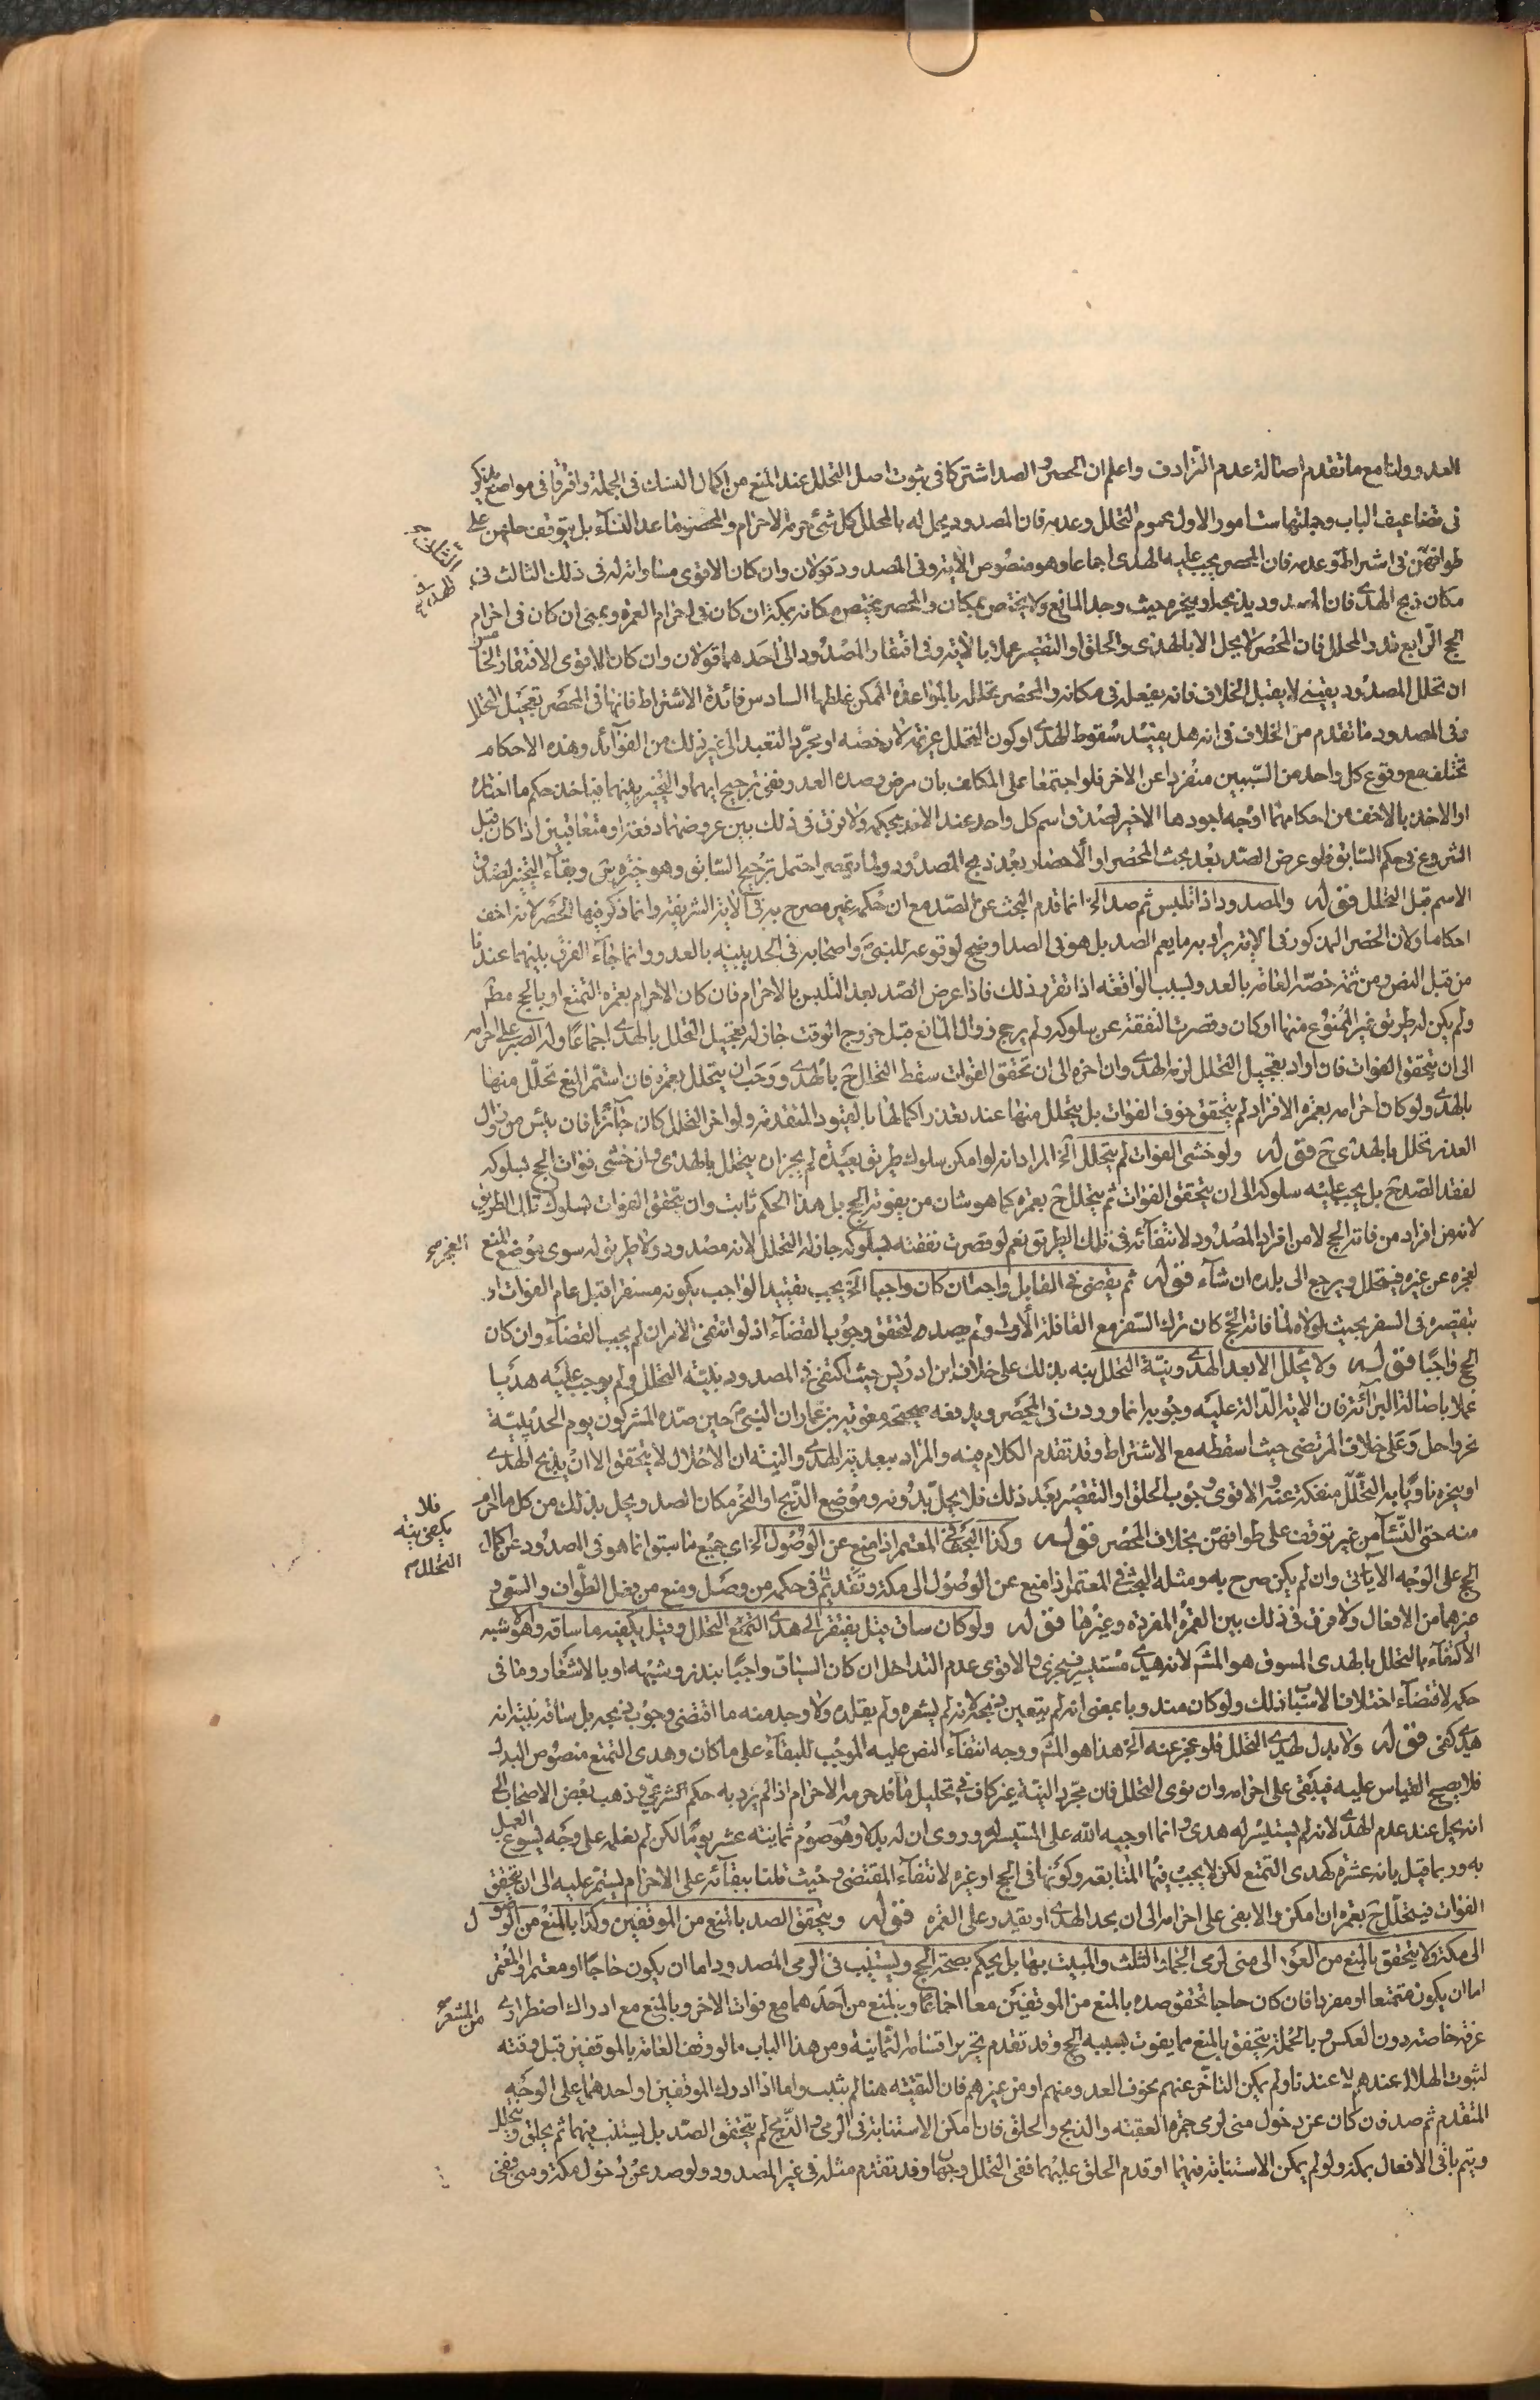 العدو ولنا مع ما تقدم اصالة عدم الترادف واعلم ان الحصر والصد اشتركا في ثبوت اصل التحلل عند المنع من اكمال النسك في الجملة وافترقا في مواضع تذكر
في تضاعيف الباب وجملتها ستة امور الاول عموم التحلل وعدمه فان المصدود يحل له بالمحلل كل شئ حرمه الاحرام والمحصر ما عدا النساء بل يتوقف حلهن على
طوافهن في اشتراط وعدمه فان المحصر يجب عليه الهدى اجماعا وهو منصوص الاية وفي المصدود قولان وان كان الاقوى مساواته له في ذلك الثالث في
مكان ذبح الهدى فان المصدود يذبحه او ينحره حيث وجد المانع ولا يختص بمكان والمحصر يختص مكانه بمكة ان كان في احرام العمرة وبمنى ان كان في احرام
الحج الرابع قدر المحلل فان المحصر لا يحل الا بالهدى والحلق او التقصير عملا بالاية وفي افتقار المصدود الى احدهما قولان وان كان الاقوى الافتقار الخامس
ان تحلل المصدود يقيني لا يقبل الخلاف فانه يفعله في مكانه والمحصر تحلله بالمواعدة الممكن غلطها السادس فائدة الاشتراط فانها في المحصر تعجيل التحلل
وفي المصدود ما تقدم من الخلاف في انه هل يفيد سقوط الهدى او كون التحلل عزيمة لا رخصة او مجرد التعبد الى غير ذلك من الفوائد وهذه الاحكام
تختلف مع وقوع كل واحد من السببين منفردا عن الاخر فلو اجتمعا على المكلف بان مرض وصده العدو ففي ترجيح ايهما والتخيير بينهما فياخذ حكم ما اختاره
او الاخذ بالاخف من احكامهما اوجه اجودها الاخير لصدق اسم كل واحد عند الاخذ بحكمه ولا فرق في ذلك بين عروضهما دفعة او متعاقبين اذا كان قبل
الشروع في حكم السابق فلو عرض الصد بعد بعث المحصر او الاحصار بعد ذبح المصدود ولما يقصر احتمل ترجيح السابق وهو خيرة س وبقاء التخيير لصدق
الاسم قبل التحلل قوله والمصدود اذا تلبس ثم صد الخ انما قدم البحث عن الصد مع ان حكمه غير مصرح به في الاية الشريفة وانما ذكر فيها الحصر لانه اخف
احكاما ولان الحصر المذكور في الاية يراد به ما يعم الصد بل هو في الصد اوضح لوقوعه للنبي ص واصحابه في الحديبية بالعدو وانما جاء الفرق بينهما عندنا
من قبل النص ومن ثم خصه العامة بالعدو لسبب الواقعة اذا تقرر ذلك فاذا عرض الصد بعد التلبس بالاحرام فان كان الاحرام بعمرة التمتع او بالحج مطم
ولم يكن له طريق غير الممنوع منها او كان وقصرت النفقة عن سلوكه ولم يرج زوال المانع قبل خروج الوقت جاز له تعجيل التحلل بالهدى اجماعا وله الصبر على احرامه
الى ان يتحقق الفوات فان اراد تعجيل التحلل لزمه الهدى وان اخره الى ان تحقق الفوات سقط التحلل ح بالهدى ووجب ان يتحلل بعمرة فان استمر المنع تحلل منها
بالهدى ولو كان احرامه بعمرة الافراد لم يتحقق خوف الفوات بل يتحلل منها عند تعذر اكمالها بالقيود المتقدمة ولو اخر التحلل كان جائزا فان يئس من زوال
العذر تحلل بالهدى ح قوله ولو خشى الفوات لم يتحلل الخ المراد انه لو امكن سلوك طريق بعيدة لم يجز ان يتحلل بالهدى وان خشى فوات الحج لسلوكه
لفقد الصد ح بل يجب عليه سلوكه الى ان يتحقق الفوات ثم يتحلل ح بعمرة كما هو شان من يفوته الحج بل هذا الحكم ثابت وان تحقق الفوات لسلوك تلك الطريق
لانه من افراد من فاته الحج لا من افراد المصدود لانتفائه في تلك الطريق نعم لو قصرت نفقته لسلوكه جاز له التحلل لانه مصدود ولا طريق له سوى موضع المنع
لعجزه عن غيره فيتحلل ويرجع الى بلده ان شاء قوله ثم يقضى في القابل واجبا ان كان واجبا الخ يجب تقييد الواجب بكونه مستقرا قبل عام الفوات او
بتقصيره في السفر بحيث لولاه لما فاته الحج كان ترك السفر مع القافلة الاولى ولم يصده ليتحقق وجوب القضاء اذ لو انتفى الامران لم يجب القضاء وان كان
الحج واجبا قوله ولا يحلل الا بعد الهدى ونية التحلل نبه بذلك على خلاف ابن ادريس حيث اكتفى في المصدود بنية التحلل ولم يوجب عليه هديا
عملا باصالة البرائة فان الاية الدالة عليه وجوبه انما وردت في المحصر ويدفعه صحيحة معوية بن عمار ان النبي ص حين صده المشركون يوم الحديبية
نحر واحل وعلى خلاف المرتضى حيث اسقطه مع الاشتراط وقد تقدم الكلام فيه والمراد ببعدية الهدى والنية ان الاحلال لا يتحقق الا ان يذبح الهدى
او ينحره ناويا به التحلل منفكة عنه والاقوى وجوب الحلق او التقصير بعد ذلك فلا يحل بدونه وموضع الذبح او النحر مكان الصد ويحل بذلك من كل ما احرم
منه حتى النساء من غير توقف على طوافهن بخلاف المحصر قوله وكذا البحث في المعتمر اذا منع عن الوصول الخ اى جميع ما سبق انما هو في المصدود عن اكمال
الحج على الوجه الاتى وان لم يكن صرح به ومثله البحث في المعتمر اذا منع عن الوصول الى مكة وتقديم في حكمه من وصل ومنع من فعل الطواف والسعى و
غيرهما من الافعال ولا فرق في ذلك بين العمرة المفردة وغيرها قوله ولو كان ساق قيل يفتقر الى هدى التمتع التحلل وقيل يكفيه ما ساقه وهو الاشبه
الاكتفاء بالتحلل بالهدى المسوق هو المشهر لانه هدى مستيسر فيجزى والاقوى عدم التداخل ان كان السياق واجبا بنذر وشبهه او بالاشعار وما في
حكمه لاقتضاء اختلاف الاسباب ذلك ولو كان مندوبا بمعنى انه لم يتعين ذبحه لانه لم يشعره ولم يقلده ولا وجد منه ما اقتضى وجوب ذبحه بل ساقه بنية انه
هدى كفى قوله ولا بدل لهدى التحلل فلو عجز عنه الخ هذا هو المشهر ووجهه انتفاء النص عليه الموجب للبقاء على ما كان وهدى التمتع منصوص البدل
فلا يصح القياس عليه فيبقى على احرامه وان نوى التحلل فان مجرد النية غير كاف في تحليل ما قد حرمه الاحرام اذا لم يرد به حكم الشرعى وذهب بعض الاصحاب الى
انه يحل عند عدم الهدى لانه لم يستيسر له هدى وانما اوجبه الله على المستيسر له وروى ان له بدلا وهو صوم ثمانية عشر يوما لكن لم نعلمه على وجه يسوغ العمل
به وربما قيل بانه عشرة كهدى التمتع لكن لا يجب فيها المتابعة وكونها في الحج او غيره لانتفاء المقتضى وحيث قلنا ببقائه على الاحرام يستمر عليه الى ان يتحقق
الفوات فيتحلل ح بعمرة ان امكن والا بقى على احرامه الى ان يجد الهدى او يقدر على العمرة قوله ويتحقق الصد بالمنع من الموقفين وكذا بالمنع من الوصول
الى مكة ولا يتحقق بالمنع من العود الى منى لرمى الجمار الثلث والمبيت بها بل يحكم بصحة الحج ويستنيب في الرمى المصدود اما ان يكون حاجا او معتمرا والمعتمر
اما ان يكون متمتعا او مفردا فان كان حاجا تحقق صده بالمنع من الموقفين معا اجماعا وبالمنع من احدهما مع فوات الاخر وبالمنع مع ادراك اضطرارى
عرفة خاصة دون العكس وبالجملة يتحقق بالمنع مما يفوت بسببه الحج وقد تقدم تحرير اقسامه الثمانية ومن هذا الباب ما لو وقف العامة بالموقفين قبل وقته
لثبوت الهلال عندهم لا عندنا ولم يكن التاخر عنهم لخوف العدو منهم او من غيرهم فان التقية هنا لم يثبت واما اذا ادرك الموقفين او احدهما على الوجه
المتقدم ثم صد فان كان عن دخول منى لرمى جمرة العقبة والذبح والحلق فان امكن الاستنابة في الرمى والذبح لم يتحقق الصد بل يستنيب فيهما ثم يحلق ويتحلل
ويتم باقى الافعال بمكة ولو لم يمكن الاستنابة فيهما او قدم الحلق عليهما ففى التحلل وجهان وقد تقدم مثله في غير المصدود ولو صد عن دخول مكة ومنى ففى
الثانى
الهدى
العجز صح
فلا
يكفى نية
التحلل
من المشعر